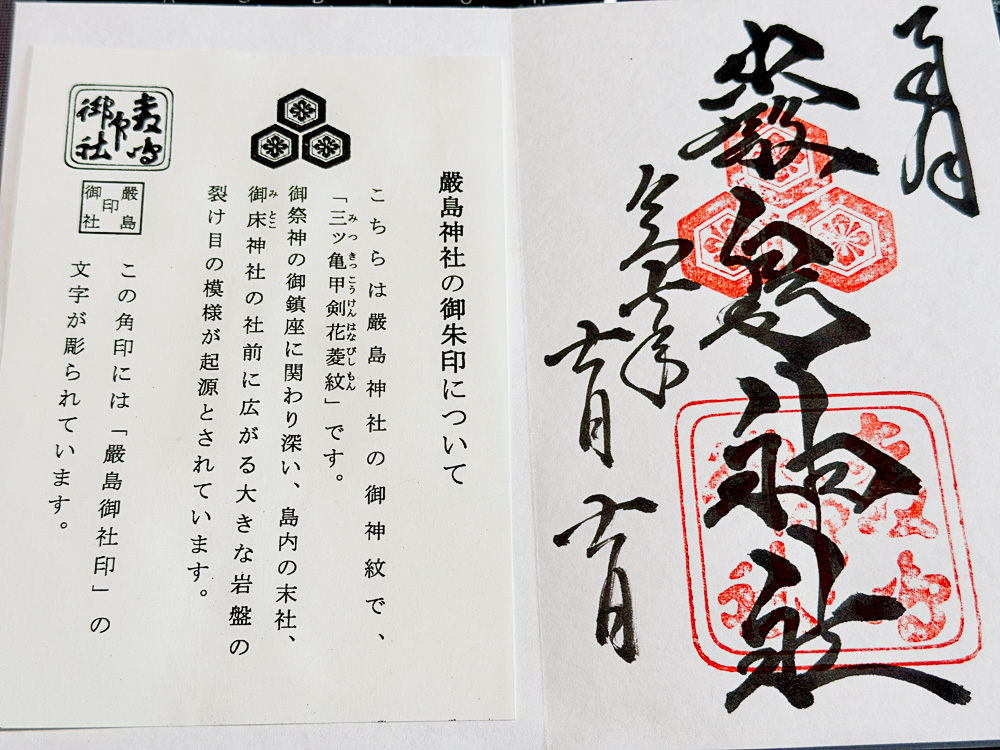 嚴島神社
嚴島神社の御朱印について
こちらは嚴島神社の御神紋で、
「三ッ亀甲剣花菱紋」です。
みっきっこうけんはなびしもん
御祭神の御鎮座に関わり深い、島内の末社、
御床神社の社前に広がる大きな岩盤の
みとこ
裂け目の模様が起源とされています。
嚴島
印
御社
この角印には「嚴島御社印」の
文字が彫られています。